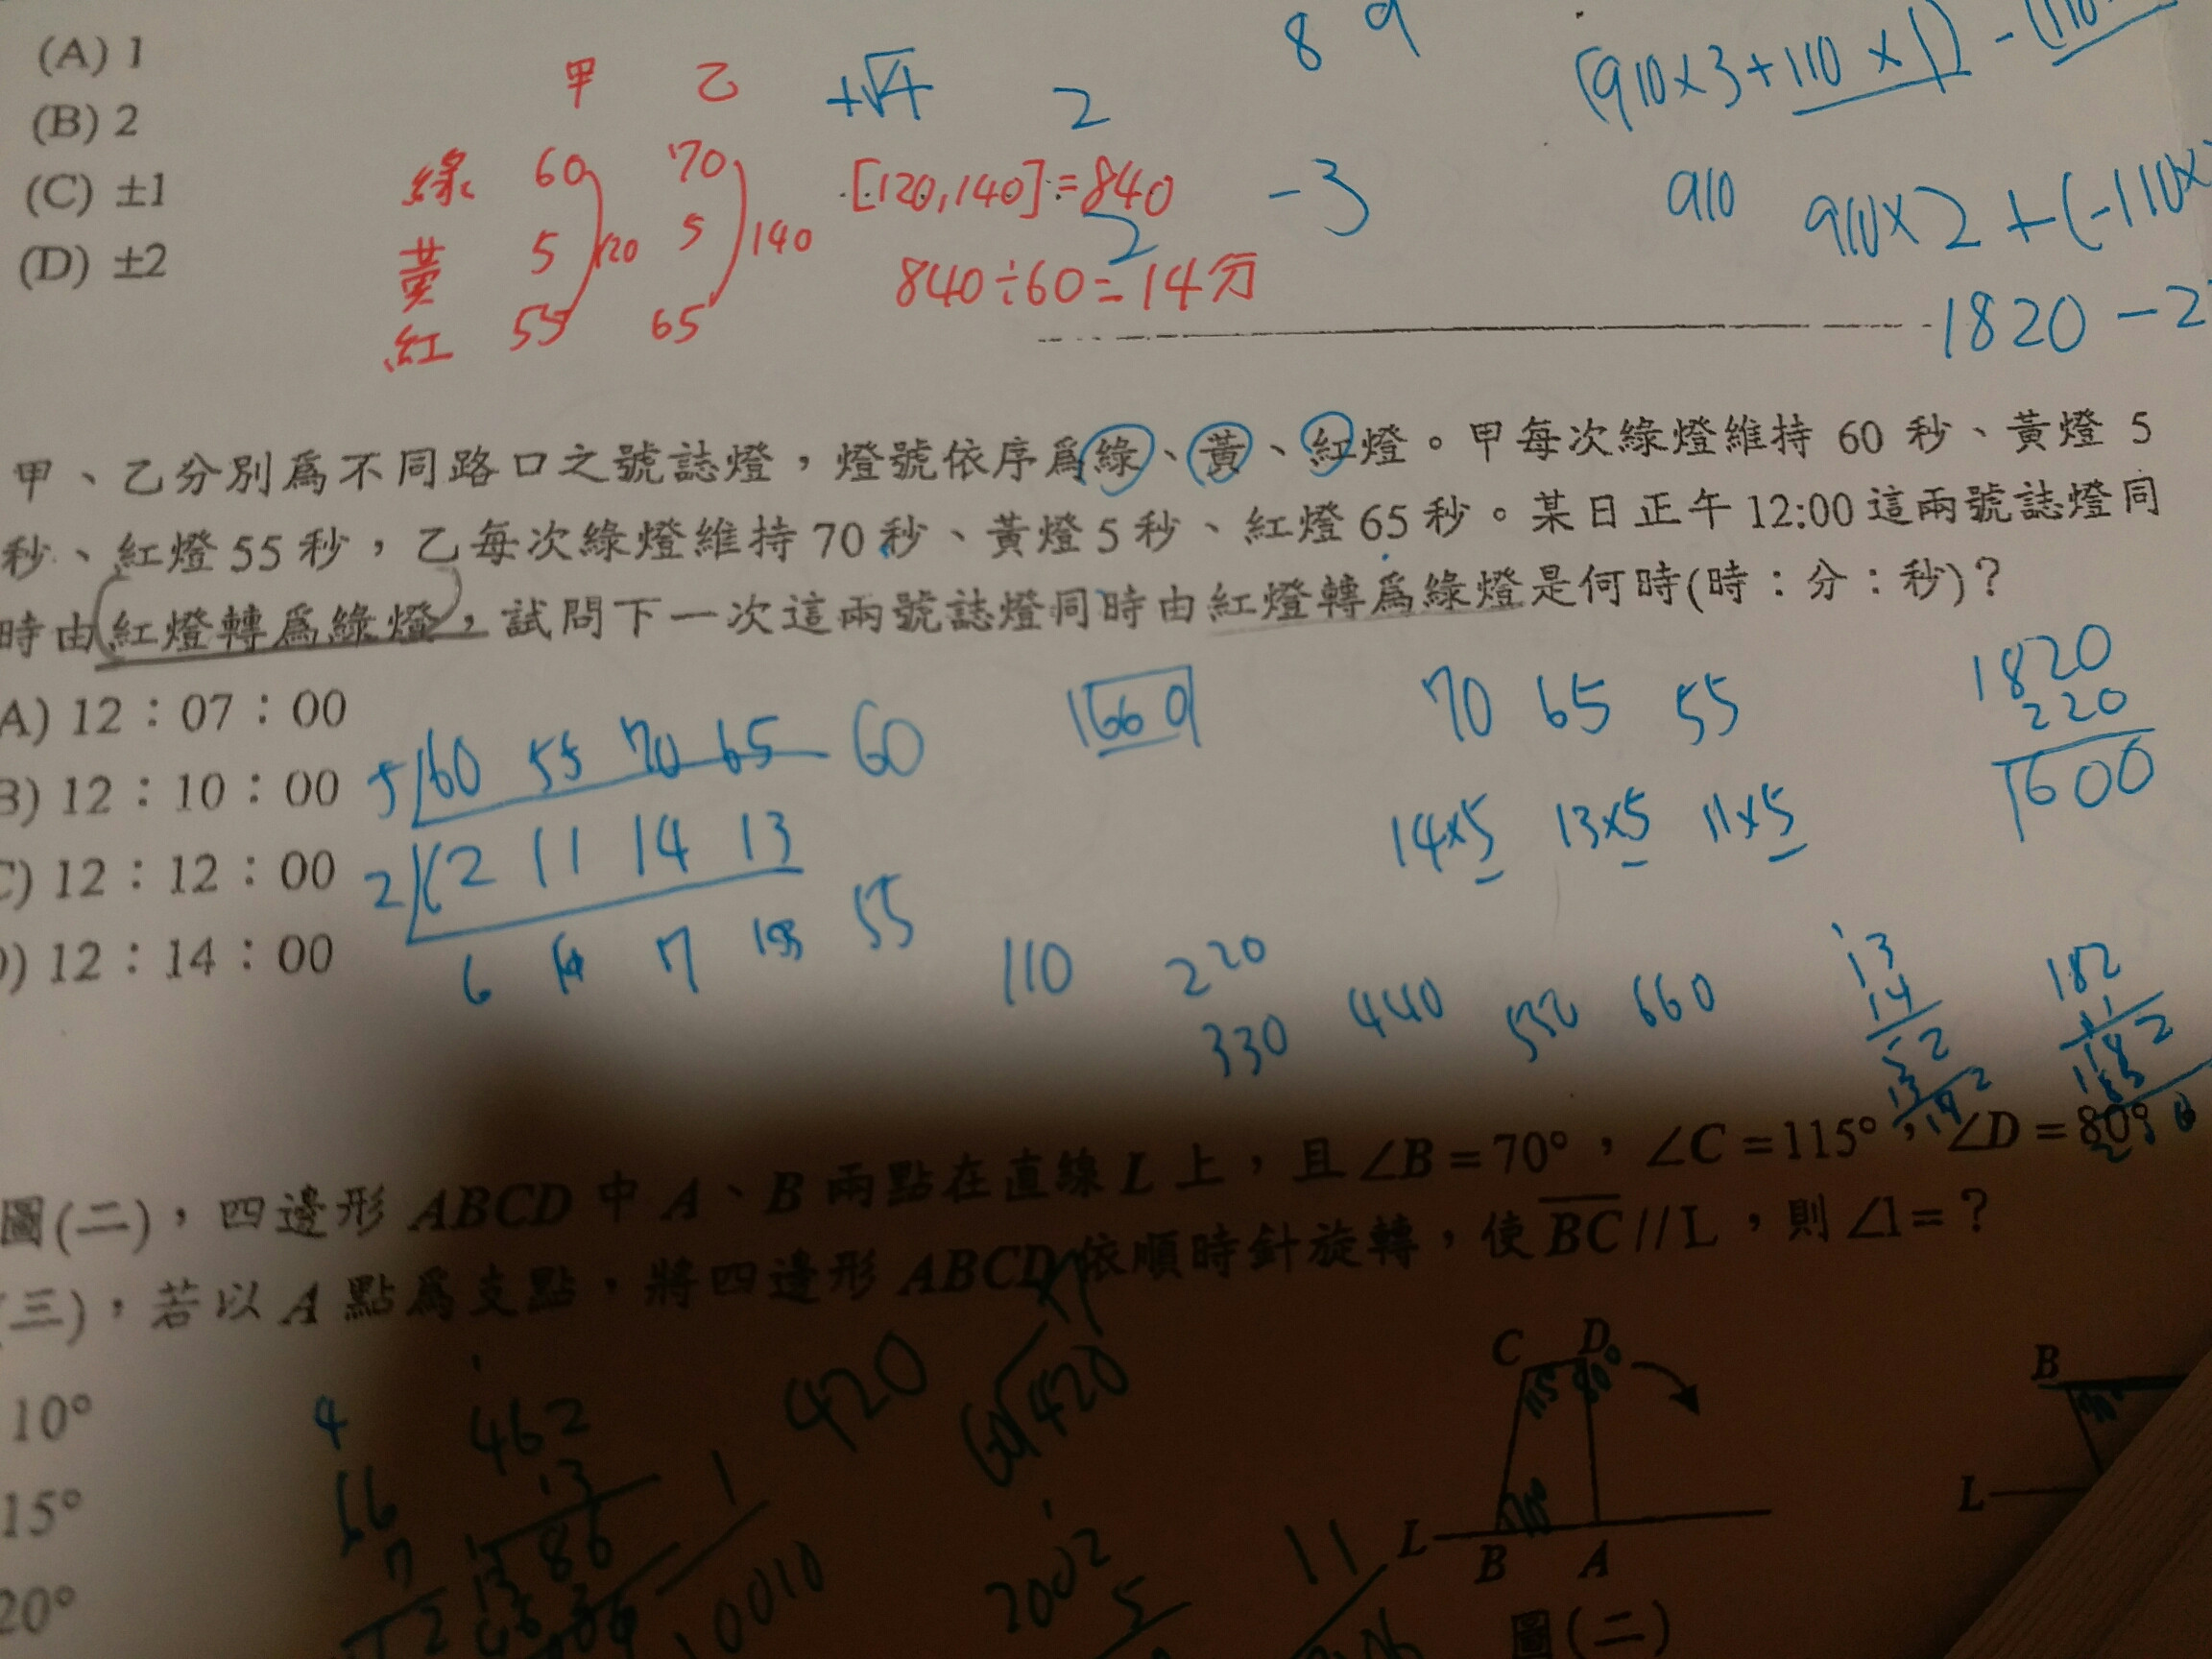 (A) 1
(B) 2
(C) ±1
(D) ±2
甲 乙
綠 60 70
黃 5 5
紅 55 65
120 140
+√4 2
[120,140]=840
2
840÷60=14分
8 9
-3
(910×3+110×1)-(110
910 910×2+(-110×
1820-2
甲、乙分別為不同路口之號誌燈，燈號依序為綠、黃、紅燈。甲每次綠燈維持 60 秒、黃燈 5
秒、紅燈 55 秒，乙每次綠燈維持 70 秒、黃燈 5 秒、紅燈 65 秒。某日正午 12:00 這兩號誌燈同
時由紅燈轉為綠燈，試問下一次這兩號誌燈同時由紅燈轉為綠燈是何時(時：分：秒)？
A) 12：07：00
B) 12：10：00
C) 12：12：00
D) 12：14：00
5 60 55 70 65 60
2 12 11 14 13
6 7 55
660
70 65 55
14×5 13×5 11×5
1820
220
1600
110 220
330 440 550 660
13
14
52
182
圖(二)，四邊形 ABCD 中 A、B 兩點在直線 L 上，且∠B=70°，∠C=115°，∠D=80°。
(三)，若以 A 點為支點，將四邊形 ABCD 依順時針旋轉，使 BC // L，則∠1=？
10°
15°
20°
4
66
7
462
13
1386
420
60 420
2002
5
11
10010
C D
115° 80°
70°
L B A
圖(二)
B
L